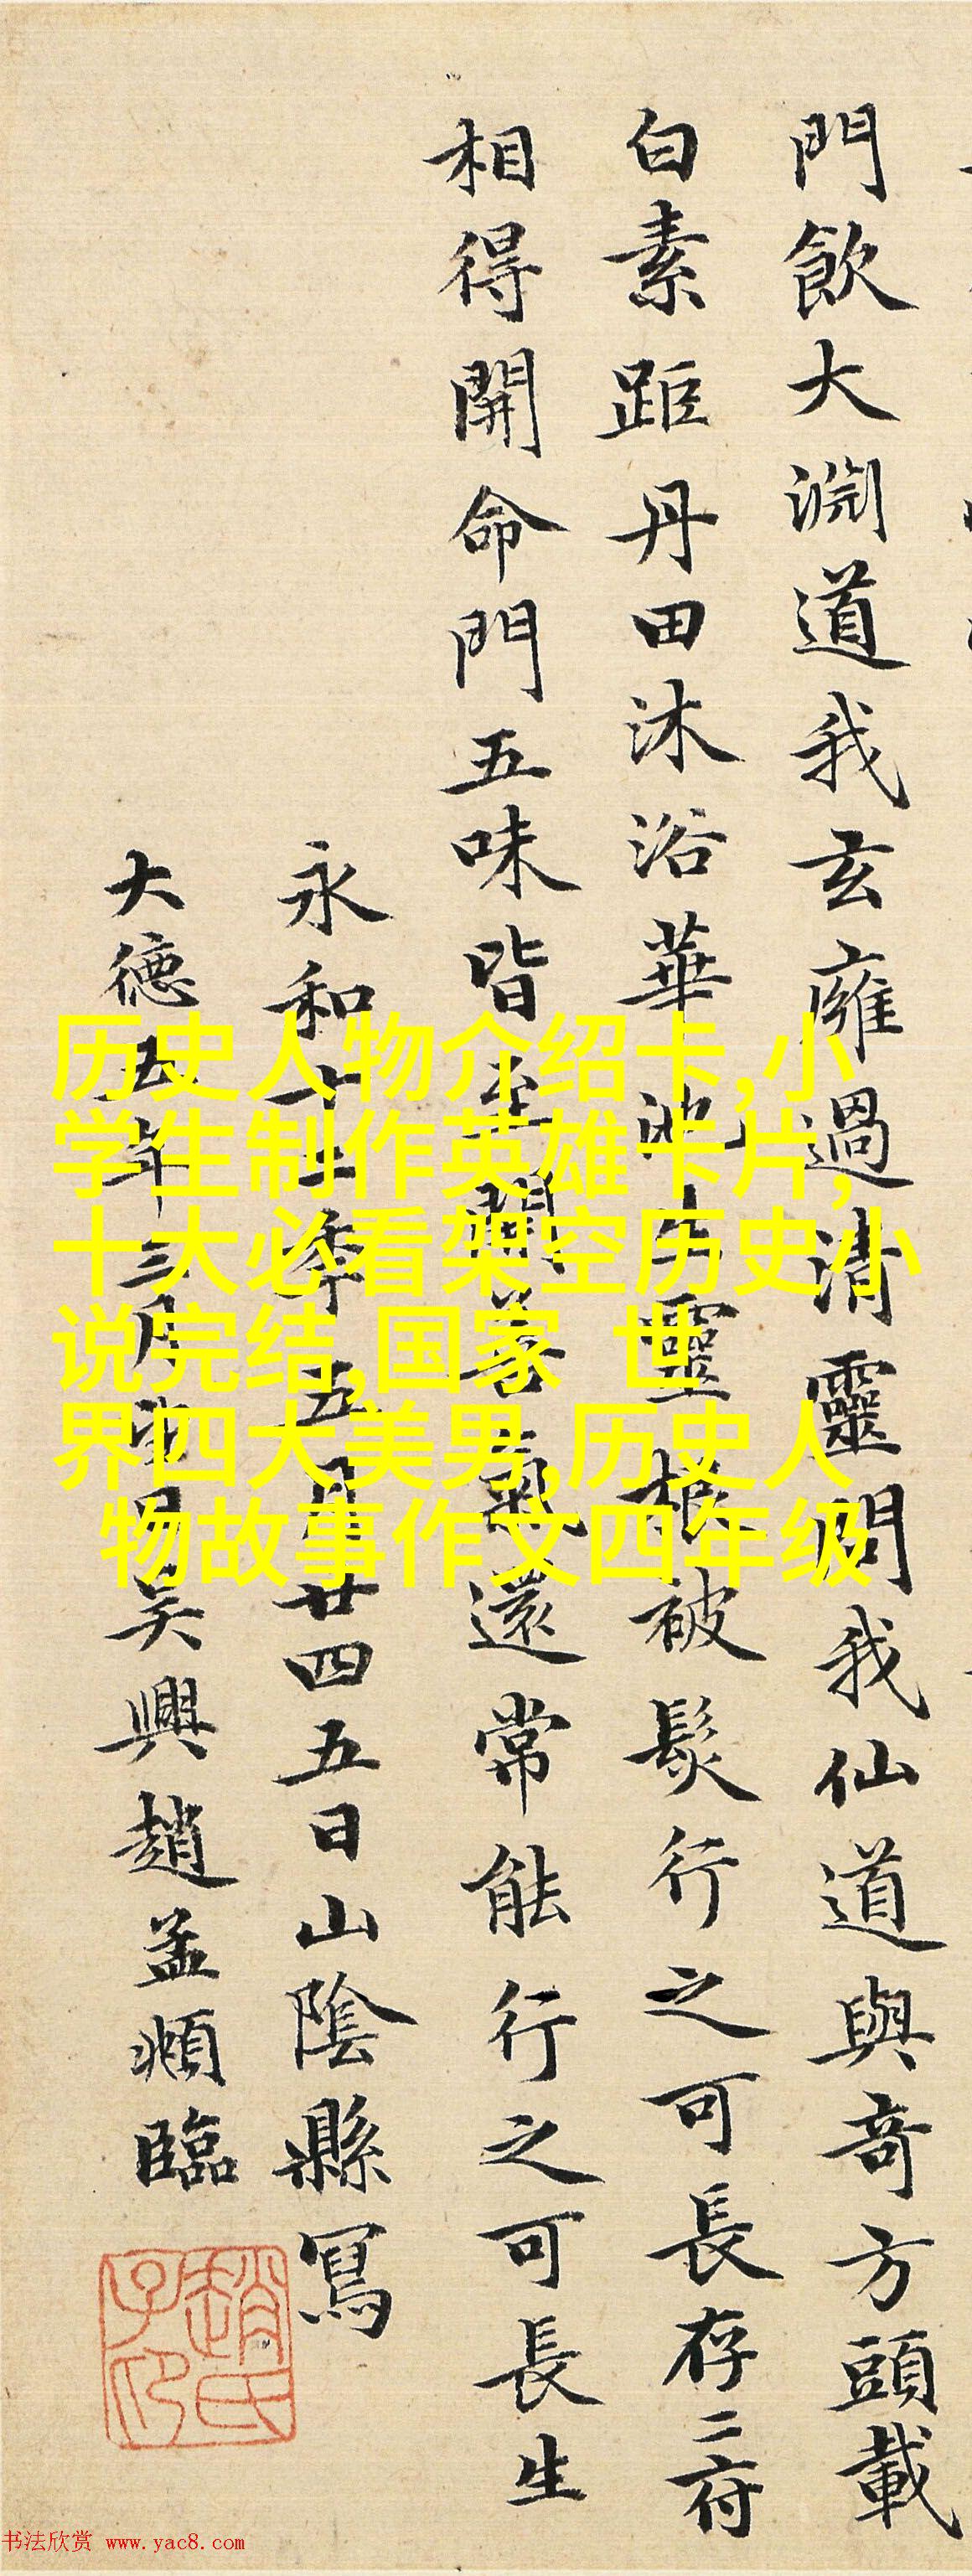 門飲大淵道我玄癰過清靈問我仙道與奇方頭載
白素距丹田沐浴華池生靈根被髮行之可長存二府
相得開命門五味皆至開善氣還常能行之可長生
永和十二年五月廿四五日山陰縣寫
大德五年三月望日吴興趙孟頫臨
趙氏子印
历史人物介绍卡,小
学生制作英雄卡片,
十大必看架空历史小
说完结,国家 世
界四大美男,历史人
物故事作文四年级
书法欣赏 www.yac8.com